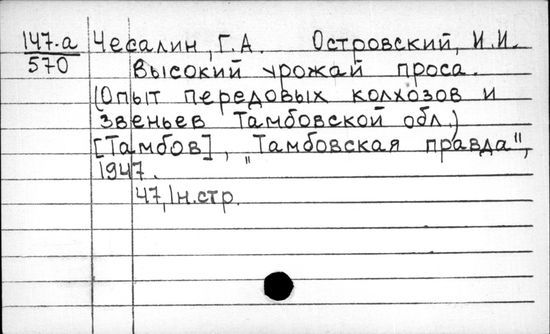 147-а Чесалин, Г.А. Островский, И.И.
570 Высокий урожай проса.
(Опыт передовых колхозов и
звеньев Тамбовской обл.)
[Тамбов], "Тамбовская правда",
1947.
47,1н.стр.